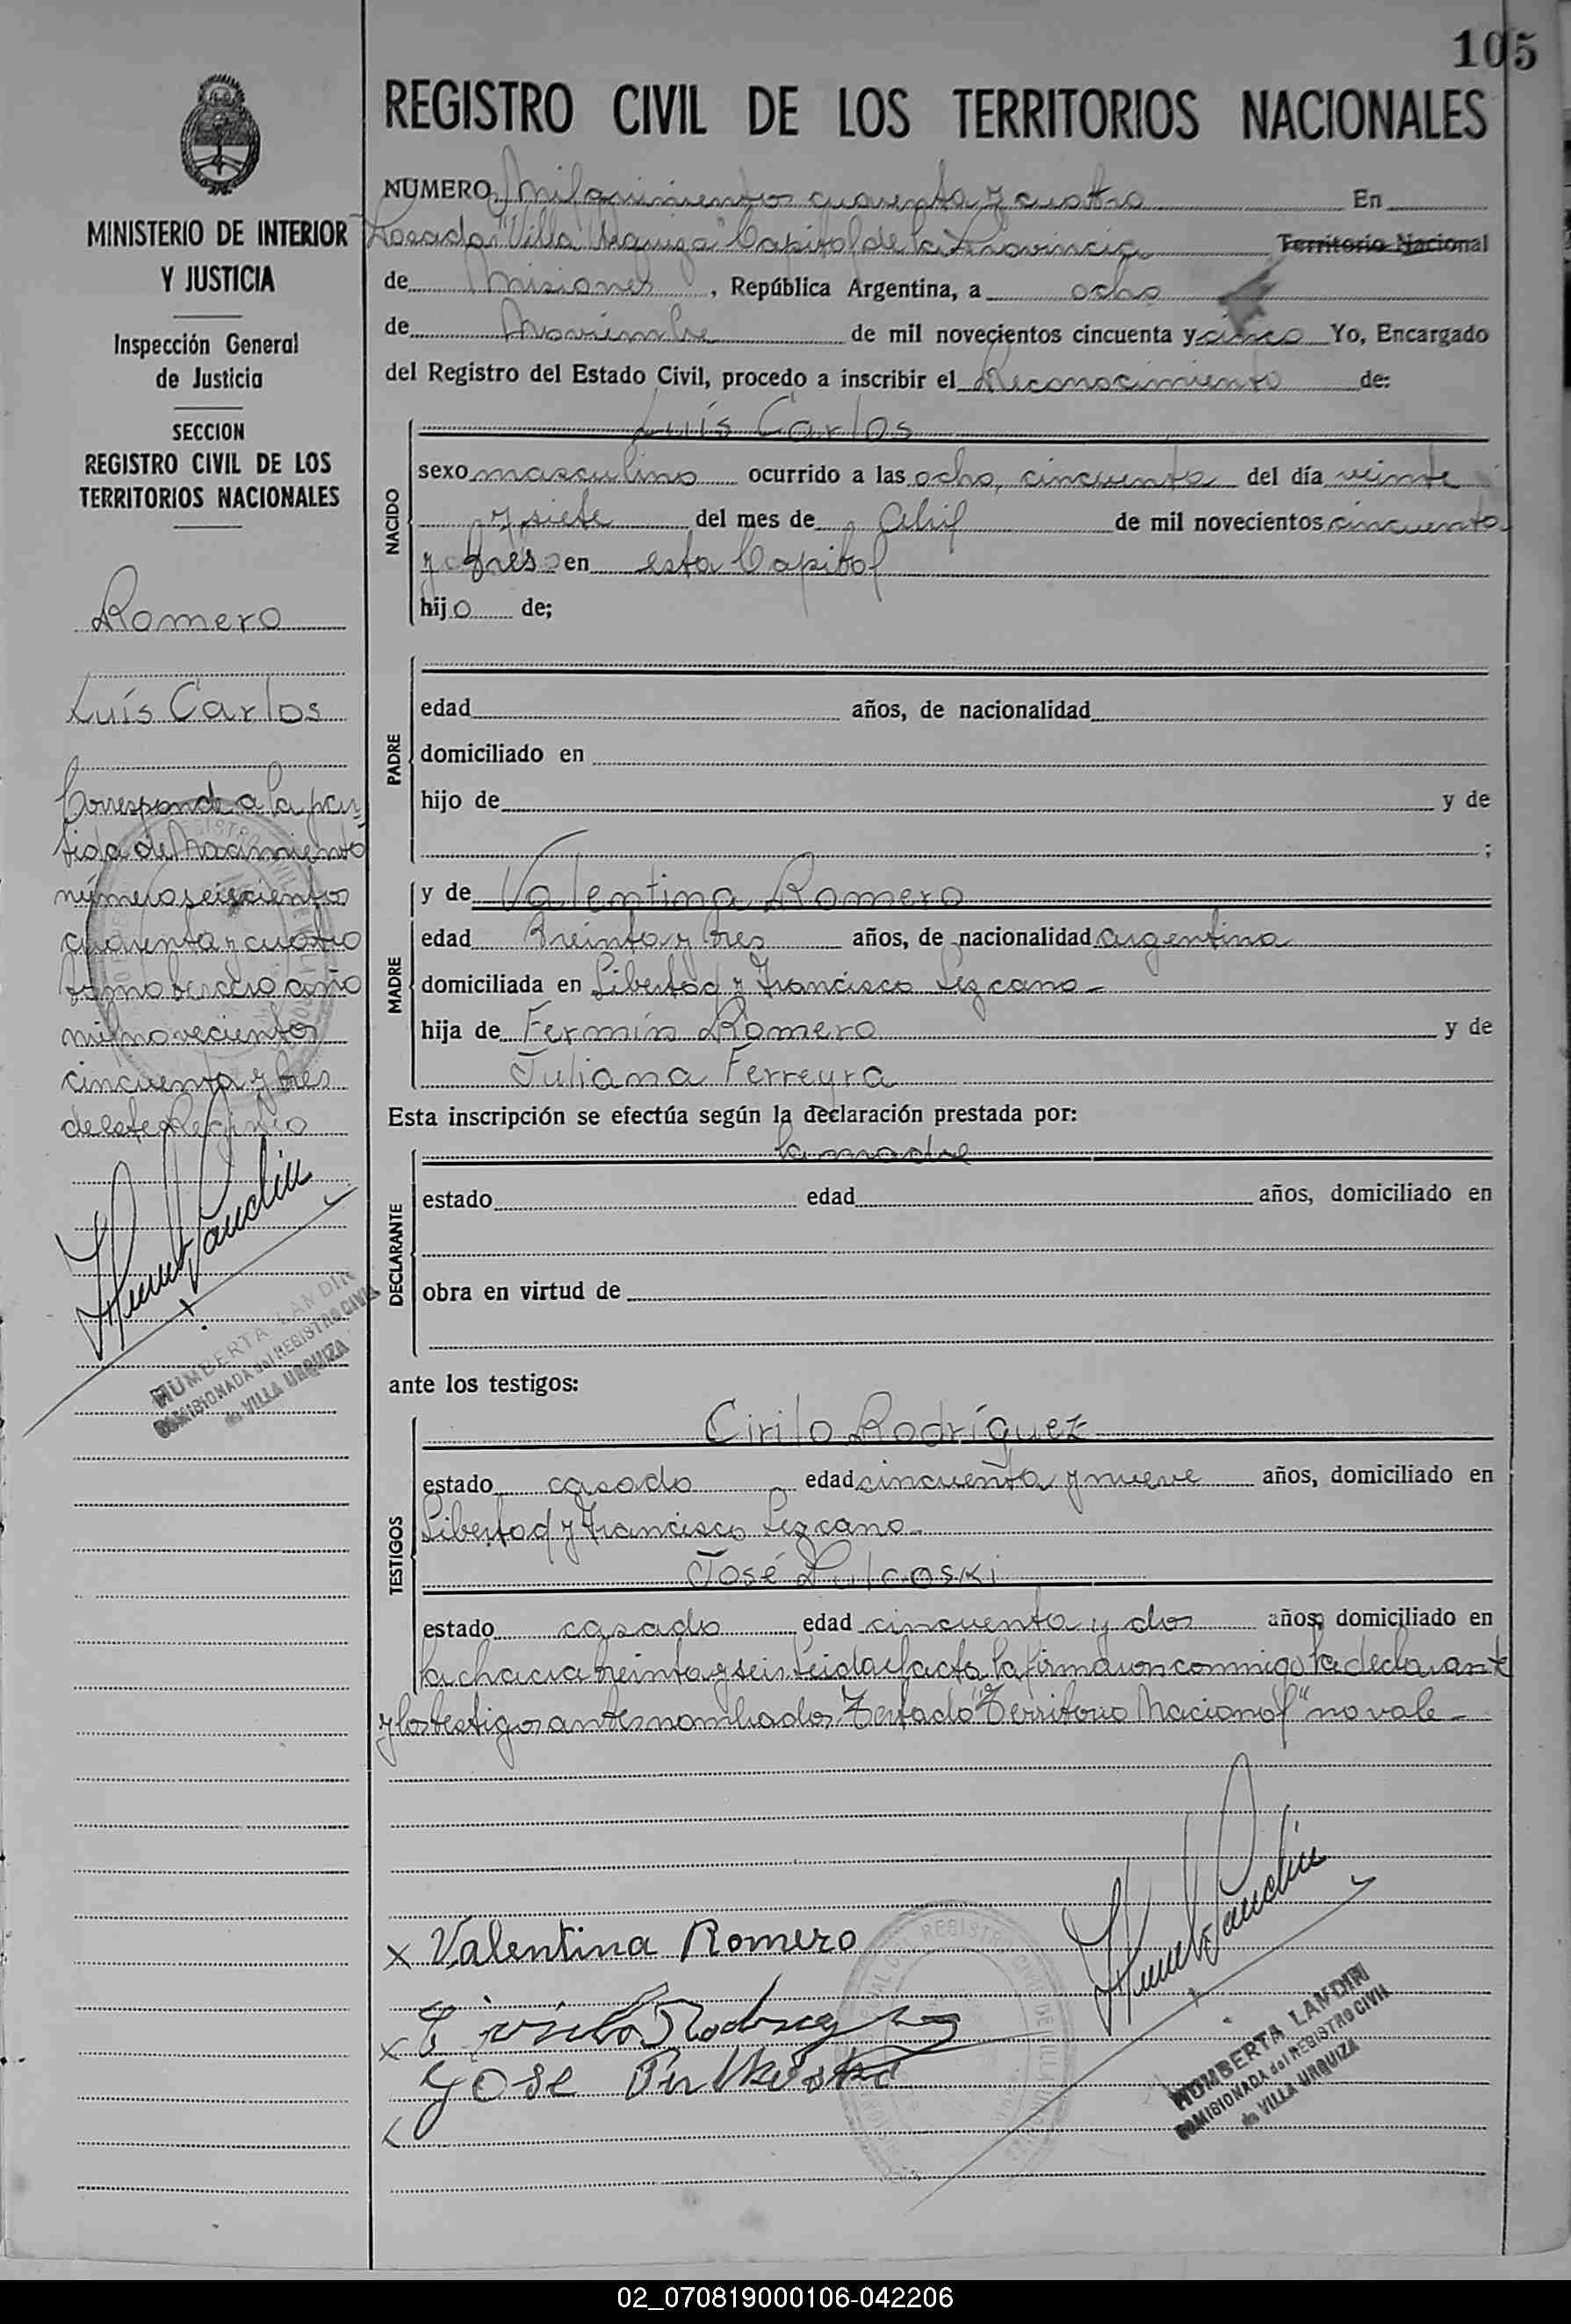 105
REGISTRO CIVIL DE LOS TERRITORIOS NACIONALES
MINISTERIO DE INTERIOR
Y JUSTICIA
Inspección General
de Justicia
SECCION
REGISTRO CIVIL DE LOS
TERRITORIOS NACIONALES
Romero
Luís Carlos
Corresponde a la par-
tida de Nacimiento
número seiscientos
cuarenta y cuatro
tomo tercero año
mil novecientos
cincuenta y tres
de este Registro
HUMBERTA LANDIN
COMISIONADA del REGISTRO CIVIL
de VILLA URQUIZA
NUMERO Mil quinientos cuarenta y cuatro En
Posadas "Villa Urquiza" Capital de la Provincia Territorio Nacional
de Misiones, República Argentina, a ocho
de Noviembre de mil novecientos cincuenta y cinco Yo, Encargado
del Registro del Estado Civil, procedo a inscribir el Reconocimiento de:
NACIDO
Luís Carlos
sexo masculino ocurrido a las ocho, cincuenta del día veinte
y siete del mes de Abril de mil novecientos cincuenta
y tres en esta Capital
hijo de;
PADRE
edad años, de nacionalidad
domiciliado en
hijo de y de
;
MADRE
y de Valentina Romero
edad treinta y tres años, de nacionalidad argentina
domiciliada en Libertad y Francisco Lezcano-
hija de Fermín Romero y de
Juliana Ferreyra
Esta inscripción se efectúa según la declaración prestada por:
DECLARANTE
la madre
estado edad años, domiciliado en
obra en virtud de
ante los testigos:
TESTIGOS
Cirilo Rodríguez
estado casado edad cincuenta y nueve años, domiciliado en
Libertad y Francisco Lezcano-
José
estado casado edad cincuenta y dos años, domiciliado en
la chacra treinta y seis Leida el acta la firmaron conmigo la declarante
y los testigos antes nombrados Testado "Territorio Nacional" no vale-
x Valentina Romero
x Cirilo Rodriguez
José
REGISTRO CIVIL DE VILLA URQUIZA
HUMBERTA LANDIN
COMISIONADA del REGISTRO CIVIL
de VILLA URQUIZA
02_070819000106-042206